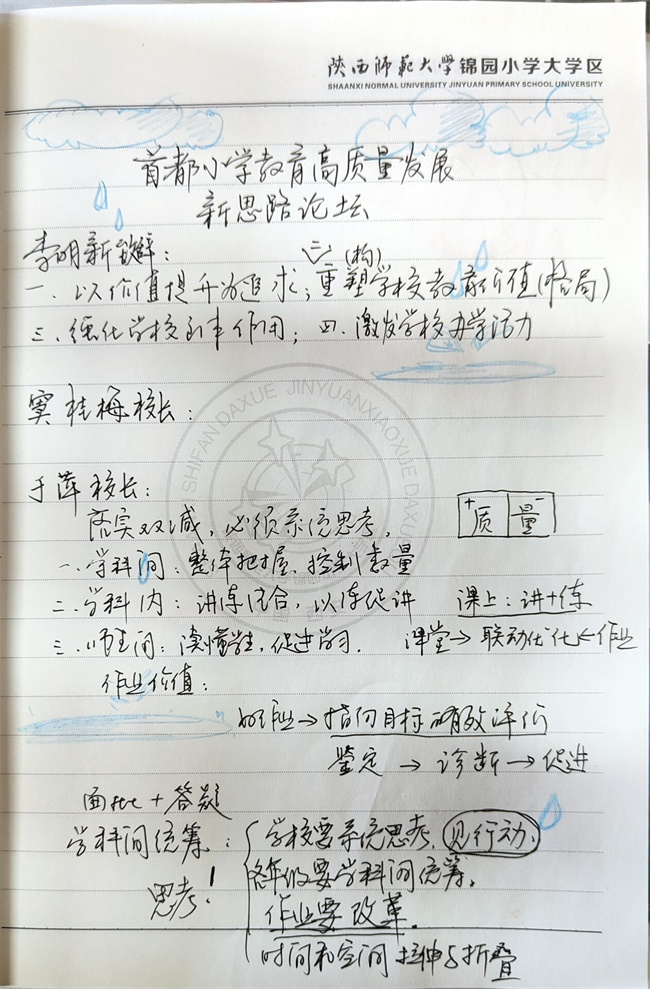 陕西师范大学锦园小学大学区
SHAANXI NORMAL UNIVERSITY JINYUAN PRIMARY SCHOOL UNIVERSITY
首都小学教育高质量发展
新思路论坛
李明新
二、(构)
一、以价值提升为追求；重塑学校教育价值(格局)
三、强化学校 作用；四、激发学校办学活力
SHIFAN DAXUE JINYUANXIAOXUE DAXUE
窦桂梅校长：
于萍校长：
落实双减，必须系统思考，
+质 量-
一、学科间：整体把握、控制数量
二、学科内：讲练结合，以练促讲 课上：讲+练
三、师生间：读懂学生，促进学习. 课堂→联动优化←作业
作业价值：
好作业→指向目标的有效评价
鉴定→诊断→促进
面批+答疑
学科间统筹：
思考！
学校要系统思考，见行动.
各年级要学科间统筹，
作业要改革.
时间和空间 拉伸与折叠